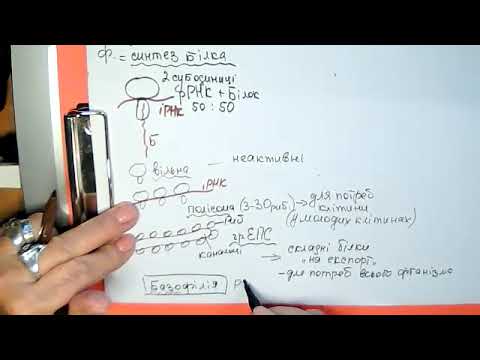 ф. = синтез білка
2 субодиниці
рРНК + Білок
іРНК 50 : 50
Б
вільна — неактивні
іРНК
полісома (3-30 риб) → для потреб
клітини
(у молодих клітинах)
грЕПС
канальці → складні білки
"на експорт"
- для потреб всього організмо
Базофілія Р